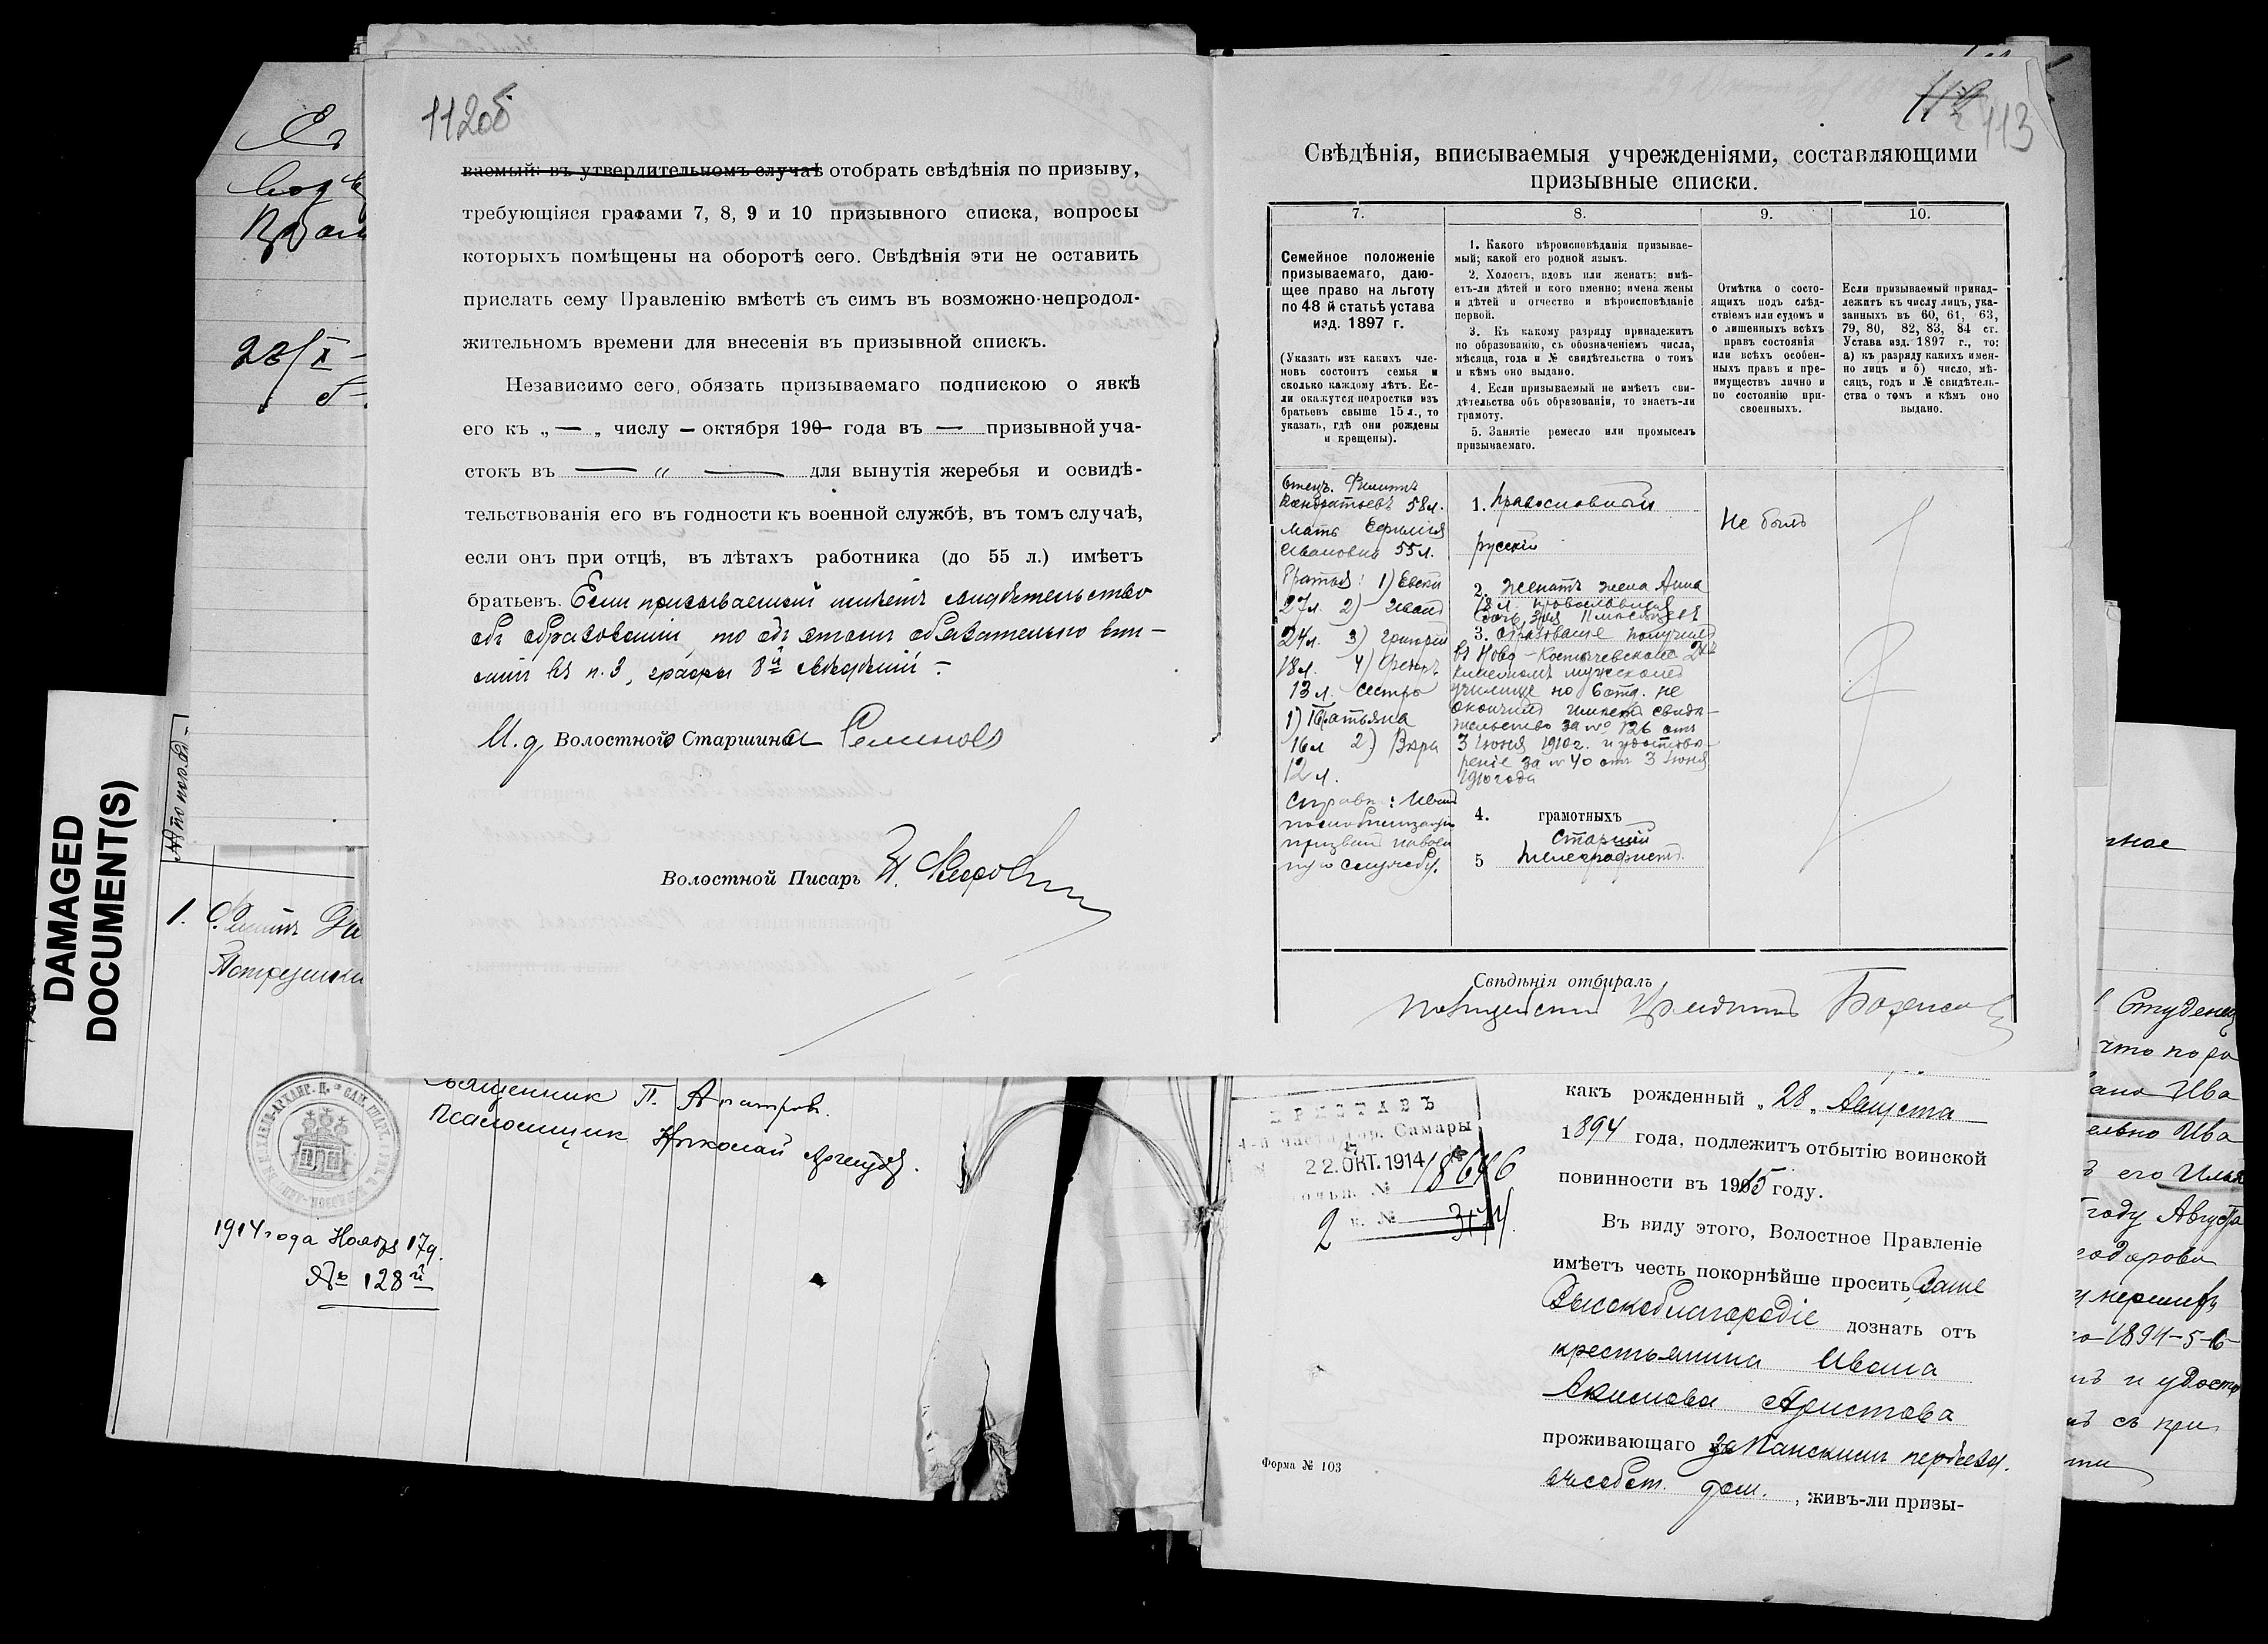 112об
ваемый: въ утвердительномъ случаѣ отобрать свѣдѣнія по призыву,
требующіяся графами 7, 8, 9 и 10 призывного списка, вопросы
которыхъ помѣщены на оборотѣ сего. Свѣдѣнія эти не оставить
прислать сему Правленію вмѣстѣ съ симъ въ возможно-непродол-
жительномъ времени для внесенія въ призывной списокъ.
Независимо сего, обязать призываемаго подпискою о явкѣ
его къ „—„ числу — октября 190 года въ — призывной уча-
стокъ въ — „ — для вынутія жеребья и освидѣ-
тельствованія его въ годности къ военной службѣ, въ томъ случаѣ,
если онъ при отцѣ, въ лѣтахъ работника (до 55 л.) имѣетъ
братьевъ. Если призываемый имѣетъ свидѣтельство
объ образованіи, то объ этомъ обязательно впи-
сать въ п. 3, графы 8й свѣдѣній —
И. д. Волостного Старшина Семеновъ
Волостной Писарь
113
Свѣдѣнія, вписываемыя учрежденіями, составляющими
призывные списки.
7.
Семейное положеніе
призываемаго, даю-
щее право на льготу
по 48 й статьѣ устава
изд. 1897 г.
(Указать изъ какихъ чле-
новъ состоитъ семья и
сколько каждому лѣтъ. Ес-
ли окажутся подростки изъ
братьевъ свыше 15 л., то
указать, гдѣ они рождены
и крещены).
8.
1. Какого вѣроисповѣданія призывае-
мый; какой его родной языкъ.
2. Холостъ, вдовъ или женатъ; имѣ-
етъ-ли дѣтей и кого именно; имена жены
и дѣтей и отчество и вѣроисповѣданіе
первой.
3. Къ какому разряду принадлежитъ
по образованію, съ обозначеніемъ числа,
мѣсяца, года и № свидѣтельства о томъ
и кѣмъ оно выдано.
4. Если призываемый не имѣетъ сви-
дѣтельства объ образованіи, то знаетъ-ли
грамоту.
5. Занятіе ремесло или промыселъ
призываемаго.
9.
Отмѣтка о состо-
ящихъ подъ слѣд-
ствіемъ или судомъ и
о лишенныхъ всѣхъ
правъ состоянія
или всѣхъ особен-
ныхъ правъ и пре-
имуществъ лично и
по состоянію при-
своенныхъ.
10.
Если призываемый принад-
лежитъ къ числу лицъ, ука-
занныхъ въ 60, 61, 63,
79, 80, 82, 83, 84 ст.
Устава изд. 1897 г., то:
а) къ разряду какихъ имен-
но лицъ и б) число, мѣ-
сяцъ, годъ и № свидѣтель-
ства о томъ и кѣмъ оно
выдано.
Отецъ. Филиппъ
Кондратьевъ 58 л.
Мать Ефимія
Ивановна 55 л.
Братья: 1)
27 л. 2) Иванъ
24 л. 3) Григорій
18 л. 4)
13 л. сестры
1) Татьяна
16 л 2) Вѣра
12 л.
Справк: Иванъ
по мобилизаціи
призванъ на воен
ную службу.
1. Православный
русскій
2. Женатъ жена Анна
18 л. православная
3. Образованіе получилъ
въ Ново-Костычевскомъ 2хъ
классномъ мужскомъ
училище но 6 отд. не
окончилъ имѣетъ свидѣ-
тельство за № 126 отъ
3 іюня 1910 г. и удостовѣ-
реніе за № 40 отъ 3 іюня
1910 года
4. грамотныхъ
Старшій
5 телеграфистъ
Не былъ
Свѣдѣнія отбиралъ
Полицейскій Урядникъ
DAMAGED
DOCUMENT(S)
28/X
1. Филиппъ
Священникъ П.
Псаломщикъ Николай
1914 года Ноября 17 д.
№ 128й
ПРИСТАВЪ
4-й части гор. Самары
22. ОКТ. 1914
18646
2
к. №
какъ рожденный „28„ Августа
1894 года, подлежитъ отбытію воинской
повинности въ 1915 году.
Въ виду этого, Волостное Правленіе
имѣетъ честь покорнѣйше просить Ваше
Высокоблагородіе дознать отъ
крестьянина Ивана
Акимова Аристова
проживающаго за Панскимъ переѣзд.
въ собст. дом., живъ-ли призы-
Форма № 103
Студенец
что по ро
его Илья
году Августа
1894-5-6
и удосто
съ при